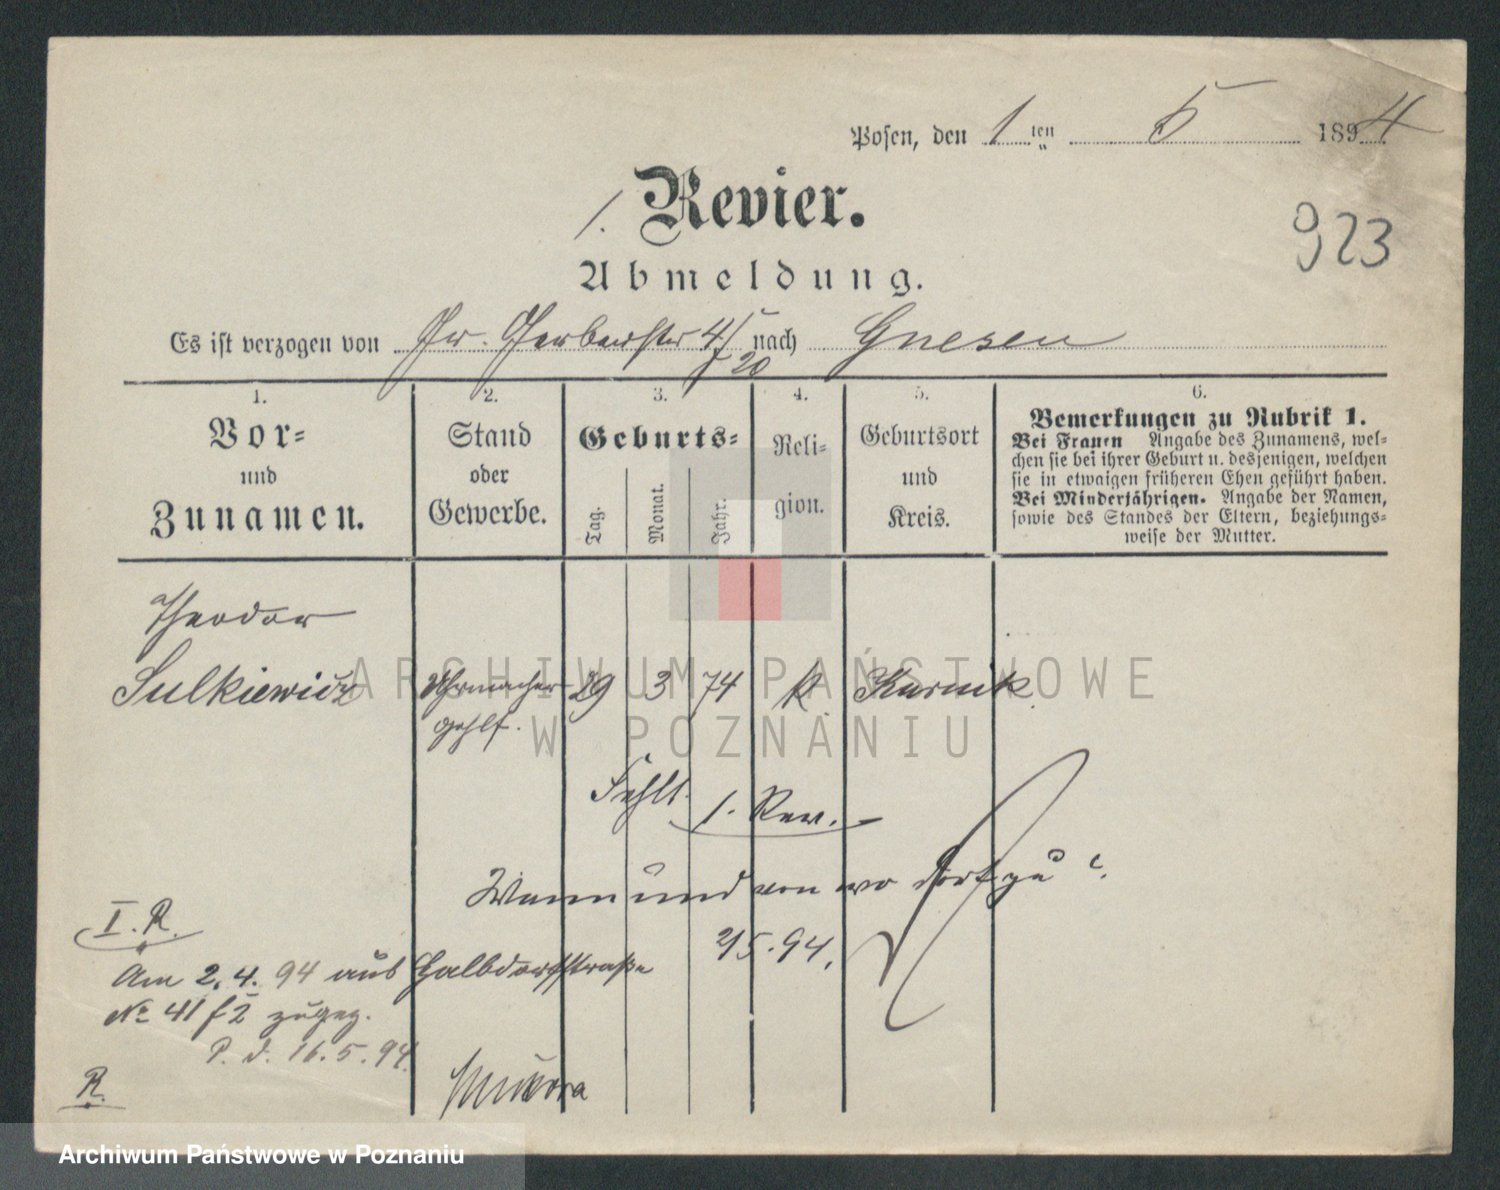 Posen, den 1 ten 5 1894
1. Revier.
923
Abmeldung.
Es ist verzogen von Gr. Gerberstr 4/5 nach Gnesen
20
1.
Vor-
und
Zunamen.
2.
Stand
oder
Gewerbe.
3.
Geburts-
Tag.
Monat.
Jahr.
4.
Reli-
gion.
5.
Geburtsort
und
Kreis.
6.
Bemerkungen zu Rubrik 1.
Bei Frauen Angabe des Zunamens, wel-
chen sie bei ihrer Geburt u. desjenigen, welchen
sie in etwaigen früheren Ehen geführt haben.
Bei Minderjährigen. Angabe der Namen,
sowie des Standes der Eltern, beziehungs-
weise der Mutter.
Theodor
Sulkiewicz Uhrmacher 29 3 74 k. Kurnik
gehlf.
Fehlt.
1. Rev.
Wann und von wo dort zu
2/5. 94.
I. R.
Am 2. 4. 94 aus Halbdorfstraße
No 41 f 2 zugez.
P. d. 16. 5. 94.
R.
ARCHIWUM PAŃSTWOWE
W POZNANIU
Archiwum Państwowe w Poznaniu